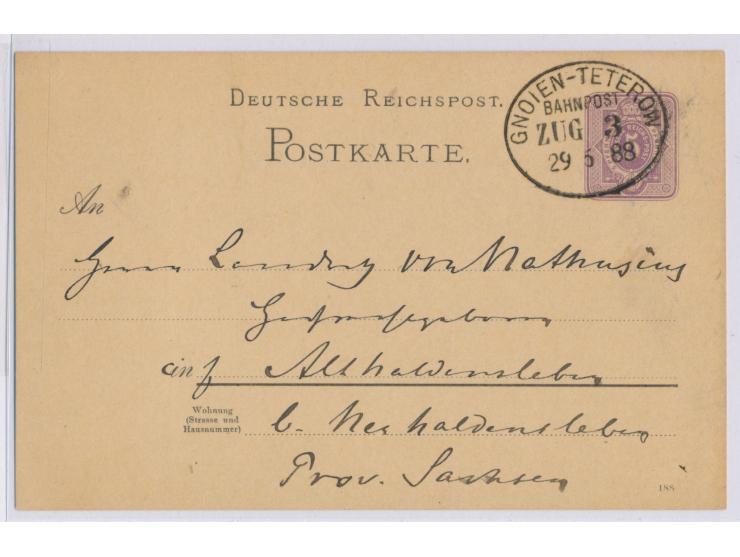 DEUTSCHE REICHSPOST.
POSTKARTE.
GNOIEN-TETEROW
BAHNPOST
ZUG 3
29 5 88
5
An
Herrn Landrat von Nathusius
Hochwohlgeboren
in
Althaldensleben
Wohnung
(Strasse und
Hausnummer)
b. Neuhaldensleben
Prov. Sachsen
188